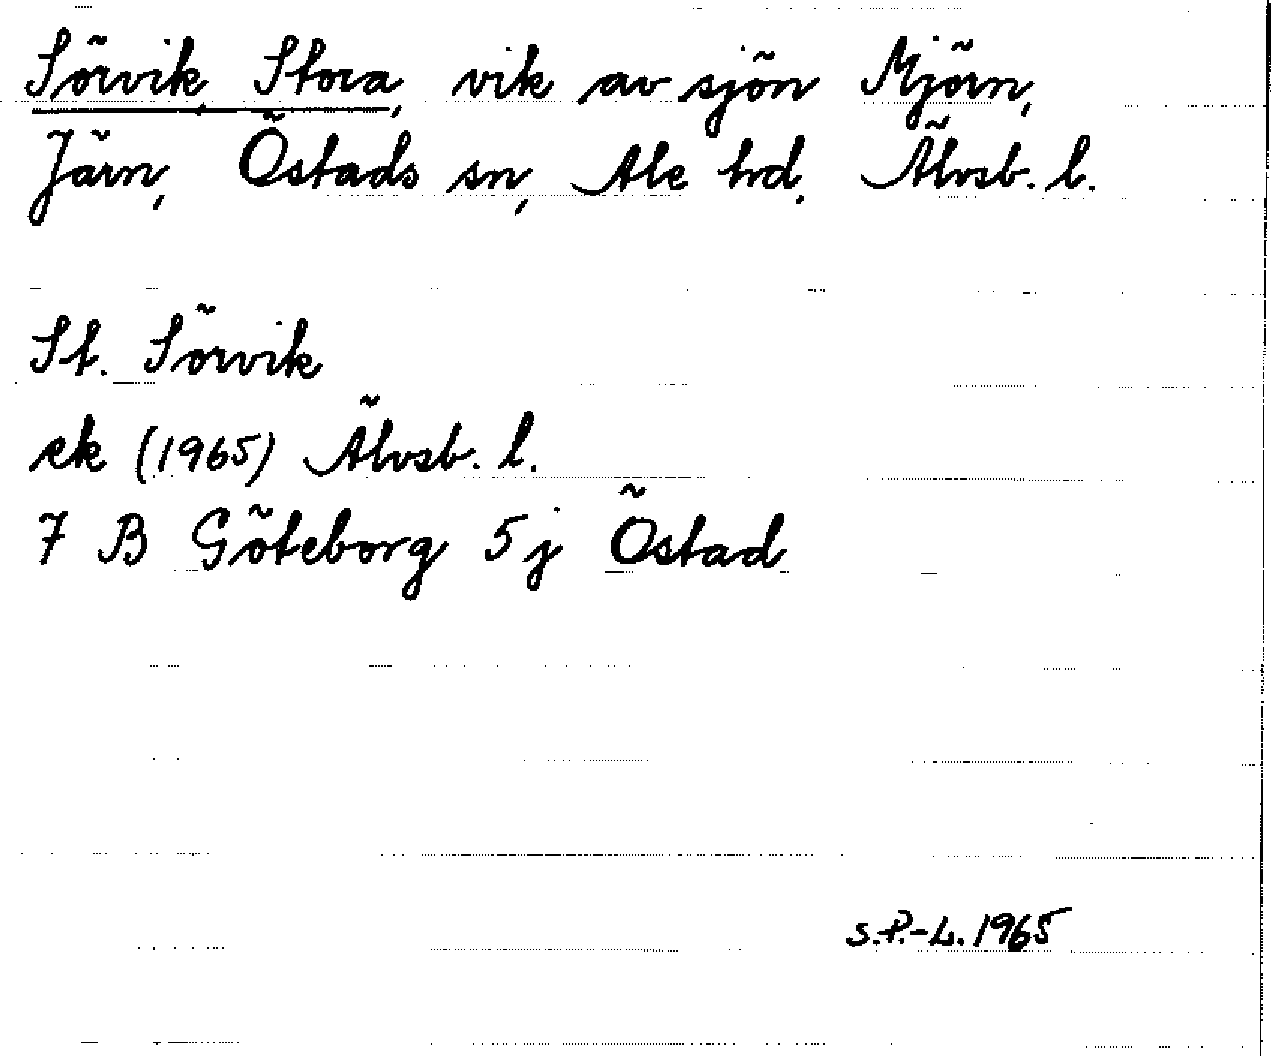 Sörvik, Stora, vik av sjön Mjörn,
Järn, Östads sn, Ale hd, Älvsb. l.
St. Sörvik
ek (1965) Älvsb. l.
7 B Göteborg 5 j Östad
S.P.-L. 1965